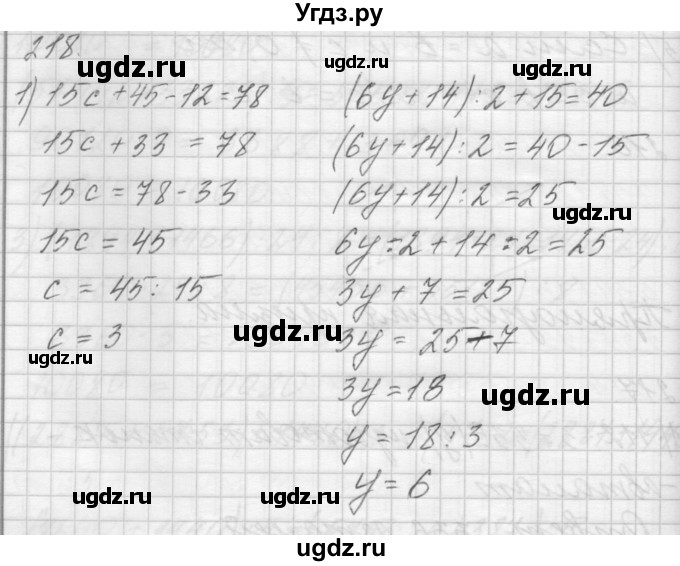 Угдз.ру
218.
1) 15c + 45 - 12 = 78
15c + 33 = 78
15c = 78 - 33
15c = 45
c = 45 : 15
c = 3
(6y + 14) : 2 + 15 = 40
(6y + 14) : 2 = 40 - 15
(6y + 14) : 2 = 25
6y : 2 + 14 : 2 = 25
3y + 7 = 25
3y = 25 - 7
3y = 18
y = 18 : 3
y = 6
ugdz.ru
ugdz.ru
ugdz.ru
ugdz.ru
ugdz.ru
ugdz.ru
ugdz.ru
ugdz.ru
ugdz.ru
ugdz.ru